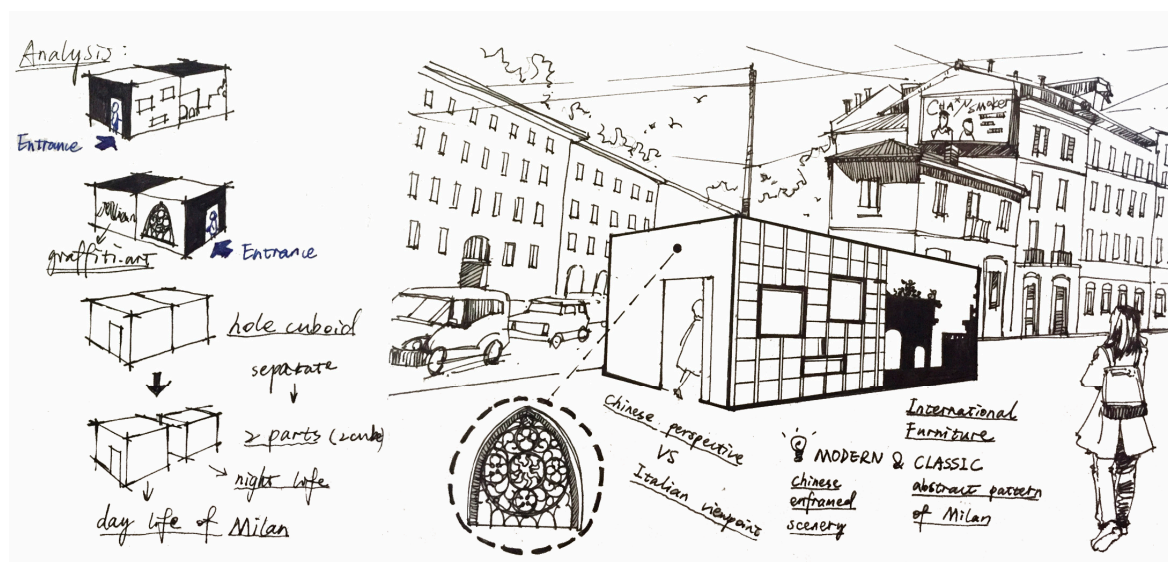 Analysis:
Entrance
graffiti-art
Entrance
hole cuboid
separate
2 parts (2cube)
night life
day life of Milan
CHAINSmoker
chinese perspective
VS
Italian viewpoint
MODERN & CLASSIC
chinese
enframed
scenery
International
Furniture
abstract pattern
of Milan